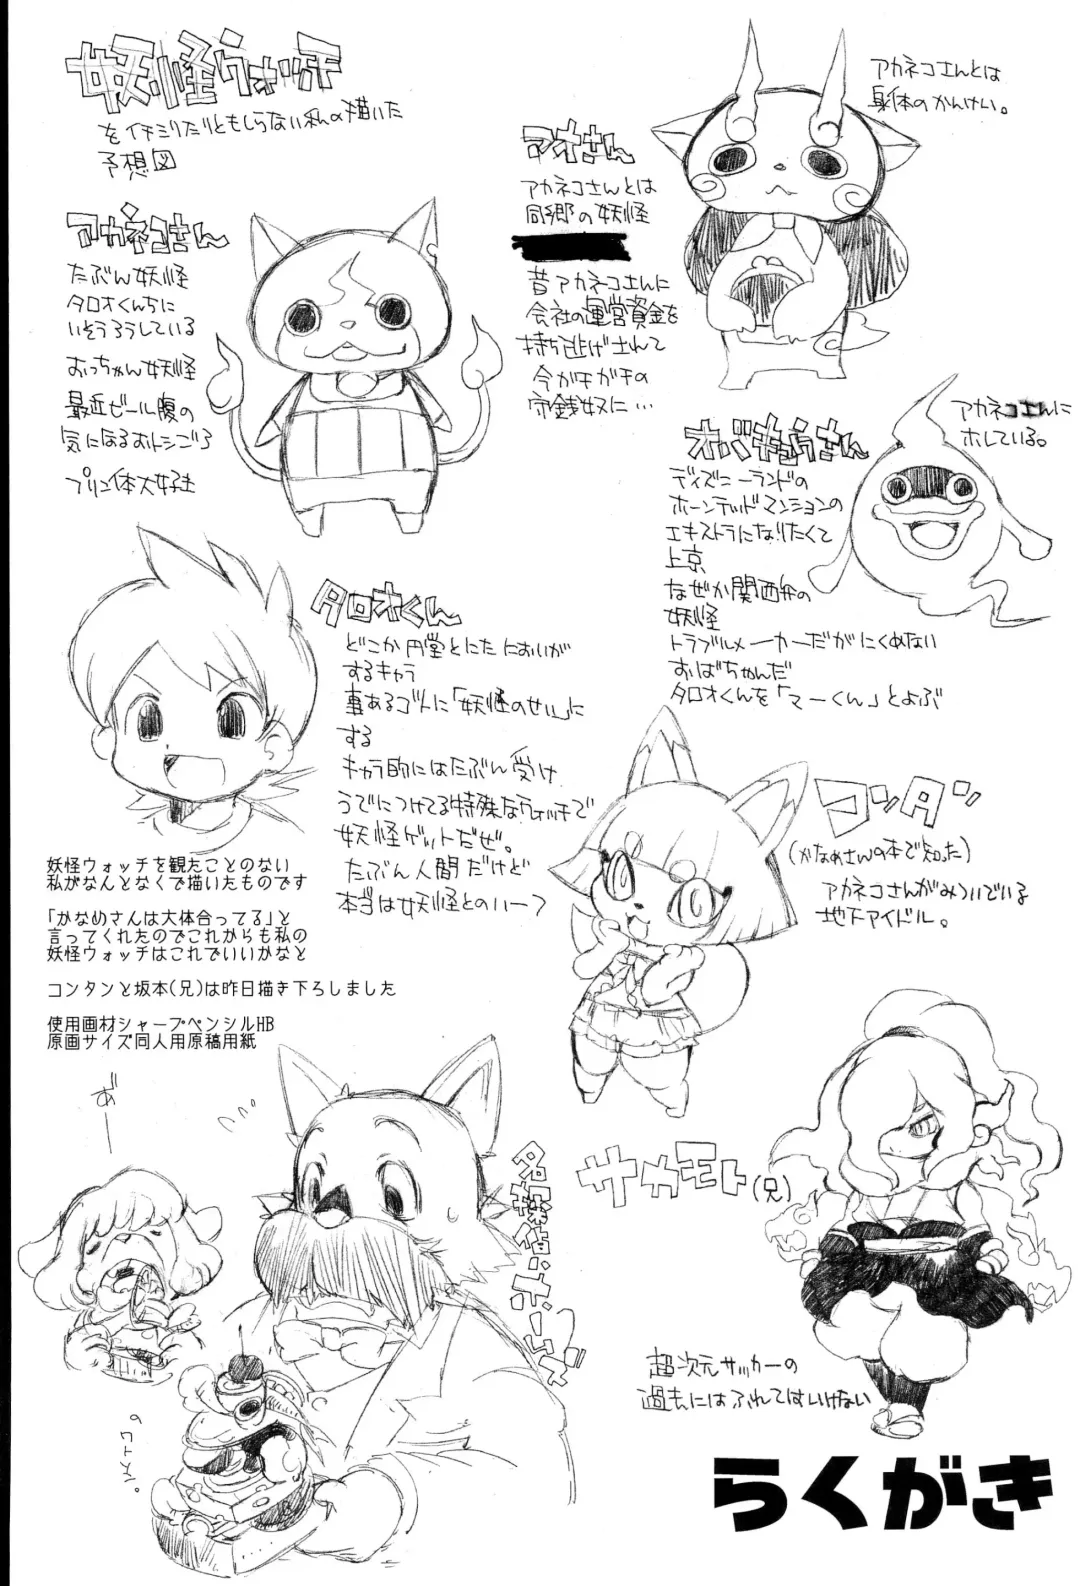 妖怪ウォッチ
をイチミリたりともしらない私の描いた
予想図
アカネコさん
たぶん妖怪
タロオくんちに
いそうろうしている
おっちゃん妖怪
最近ビール腹の
気になるおトシゴろ
プリン体大好き
アオさん
アカネコさんとは
同郷の妖怪
昔アカネコさんに
会社の運営資金を
持ち逃げされて
今ガチガチの
守銭奴に…
アカネコさんとは
身体のかんけい。
オバキョウさん
ディズニーランドの
ホーンテッドマンションの
エキストラになりたくて
上京
なぜか関西弁の
妖怪
トラブルメーカーだがにくめない
おばちゃんだ
タロオくんを「マーくん」とよぶ
アカネコさんに
ホレている。
タロオくん
どこか円堂とにたにおいが
するキャラ
事あるゴトに「妖怪のせい」に
する
キャラ的にはたぶん受け
うでにつけてる特殊なウォッチで
妖怪ゲットだぜ。
たぶん人間だけど
本当は妖怪とのハーフ
コンタン
(かなめさんの本で知った)
アカネコさんがみついでいる
地下アイドル。
妖怪ウォッチを観たことのない
私がなんとなくで描いたものです
「かなめさんは大体合ってる」と
言ってくれたのでこれからも私の
妖怪ウォッチはこれでいいかなと
コンタンと坂本(兄)は昨日描き下ろしました
使用画材シャープペンシルHB
原画サイズ同人用原稿用紙
あー
名探偵・ホームズ
サカモト(兄)
超次元サッカーの
過去にはふれてはいけない
らくがき